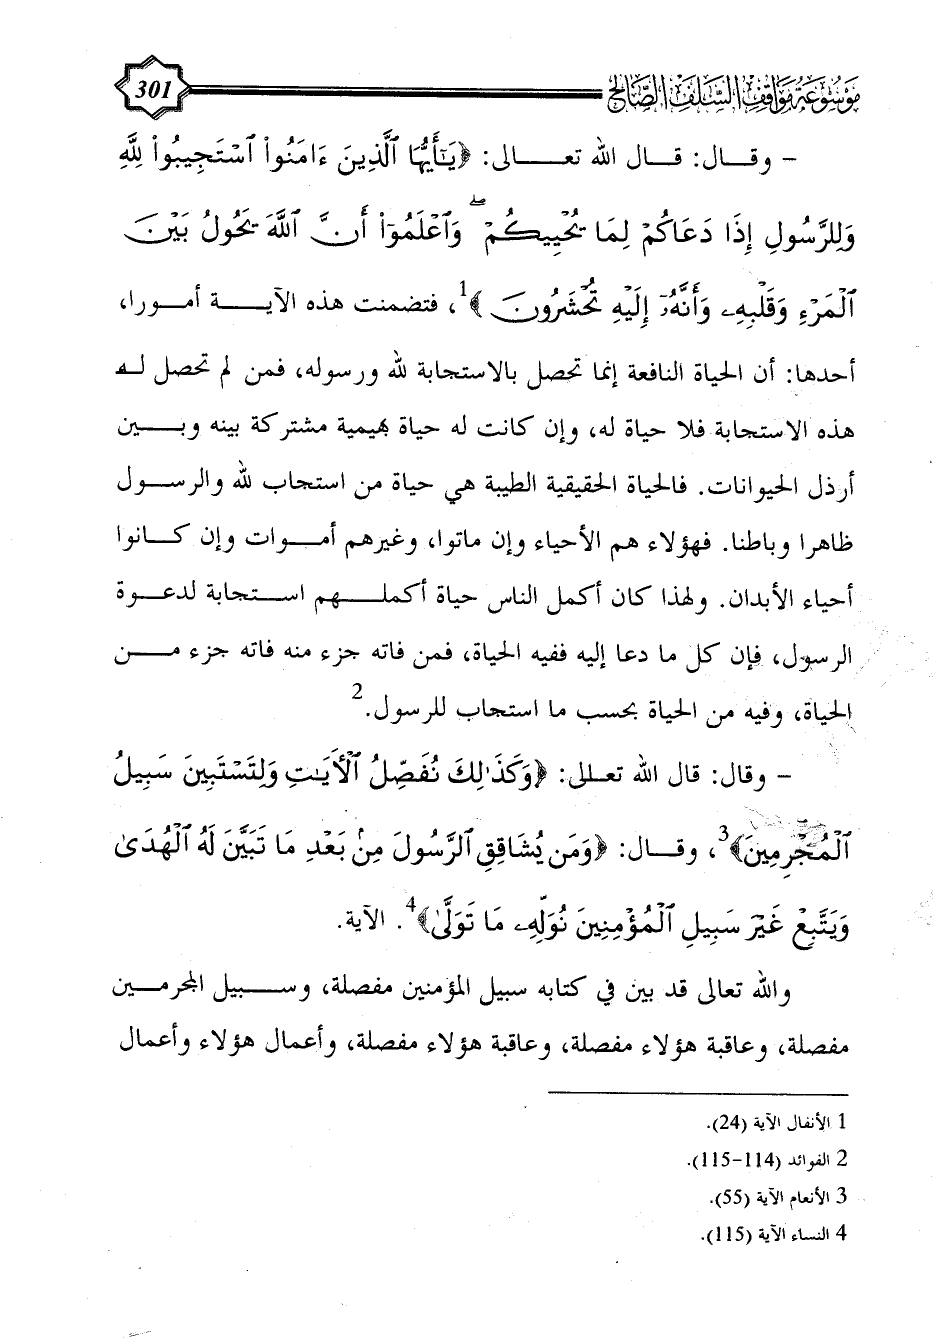 موسوعة مواقف السلف الصالح
301
- وقال: قال الله تعالى: ﴿يَٰٓأَيُّهَا ٱلَّذِينَ ءَامَنُوا۟ ٱسْتَجِيبُوا۟ لِلَّهِ
وَلِلرَّسُولِ إِذَا دَعَاكُمْ لِمَا يُحْيِيكُمْ ۖ وَٱعْلَمُوٓا۟ أَنَّ ٱللَّهَ يَحُولُ بَيْنَ
ٱلْمَرْءِ وَقَلْبِهِۦ وَأَنَّهُۥٓ إِلَيْهِ تُحْشَرُونَ﴾1، فتضمنت هذه الآية أمورا،
أحدها: أن الحياة النافعة إنما تحصل بالاستجابة لله ورسوله، فمن لم تحصل له
هذه الاستجابة فلا حياة له، وإن كانت له حياة بهيمية مشتركة بينه وبين
أرذل الحيوانات. فالحياة الحقيقية الطيبة هي حياة من استجاب لله والرسول
ظاهرا وباطنا. فهؤلاء هم الأحياء وإن ماتوا، وغيرهم أموات وإن كانوا
أحياء الأبدان. ولهذا كان أكمل الناس حياة أكملهم استجابة لدعوة
الرسول، فإن كل ما دعا إليه ففيه الحياة، فمن فاته جزء منه فاته جزء من
الحياة، وفيه من الحياة بحسب ما استجاب للرسول.2
- وقال: قال الله تعالى: ﴿وَكَذَٰلِكَ نُفَصِّلُ ٱلْأَيَٰتِ وَلِتَسْتَبِينَ سَبِيلُ
ٱلْمُجْرِمِينَ﴾3، وقال: ﴿وَمَن يُشَاقِقِ ٱلرَّسُولَ مِنۢ بَعْدِ مَا تَبَيَّنَ لَهُ ٱلْهُدَىٰ
وَيَتَّبِعْ غَيْرَ سَبِيلِ ٱلْمُؤْمِنِينَ نُوَلِّهِۦ مَا تَوَلَّىٰ﴾4. الآية.
والله تعالى قد بين في كتابه سبيل المؤمنين مفصلة، وسبيل المجرمين
مفصلة، وعاقبة هؤلاء مفصلة، وعاقبة هؤلاء مفصلة، وأعمال هؤلاء وأعمال
1 الأنفال الآية (24).
2 الفوائد (114-115).
3 الأنعام الآية (55).
4 النساء الآية (115).